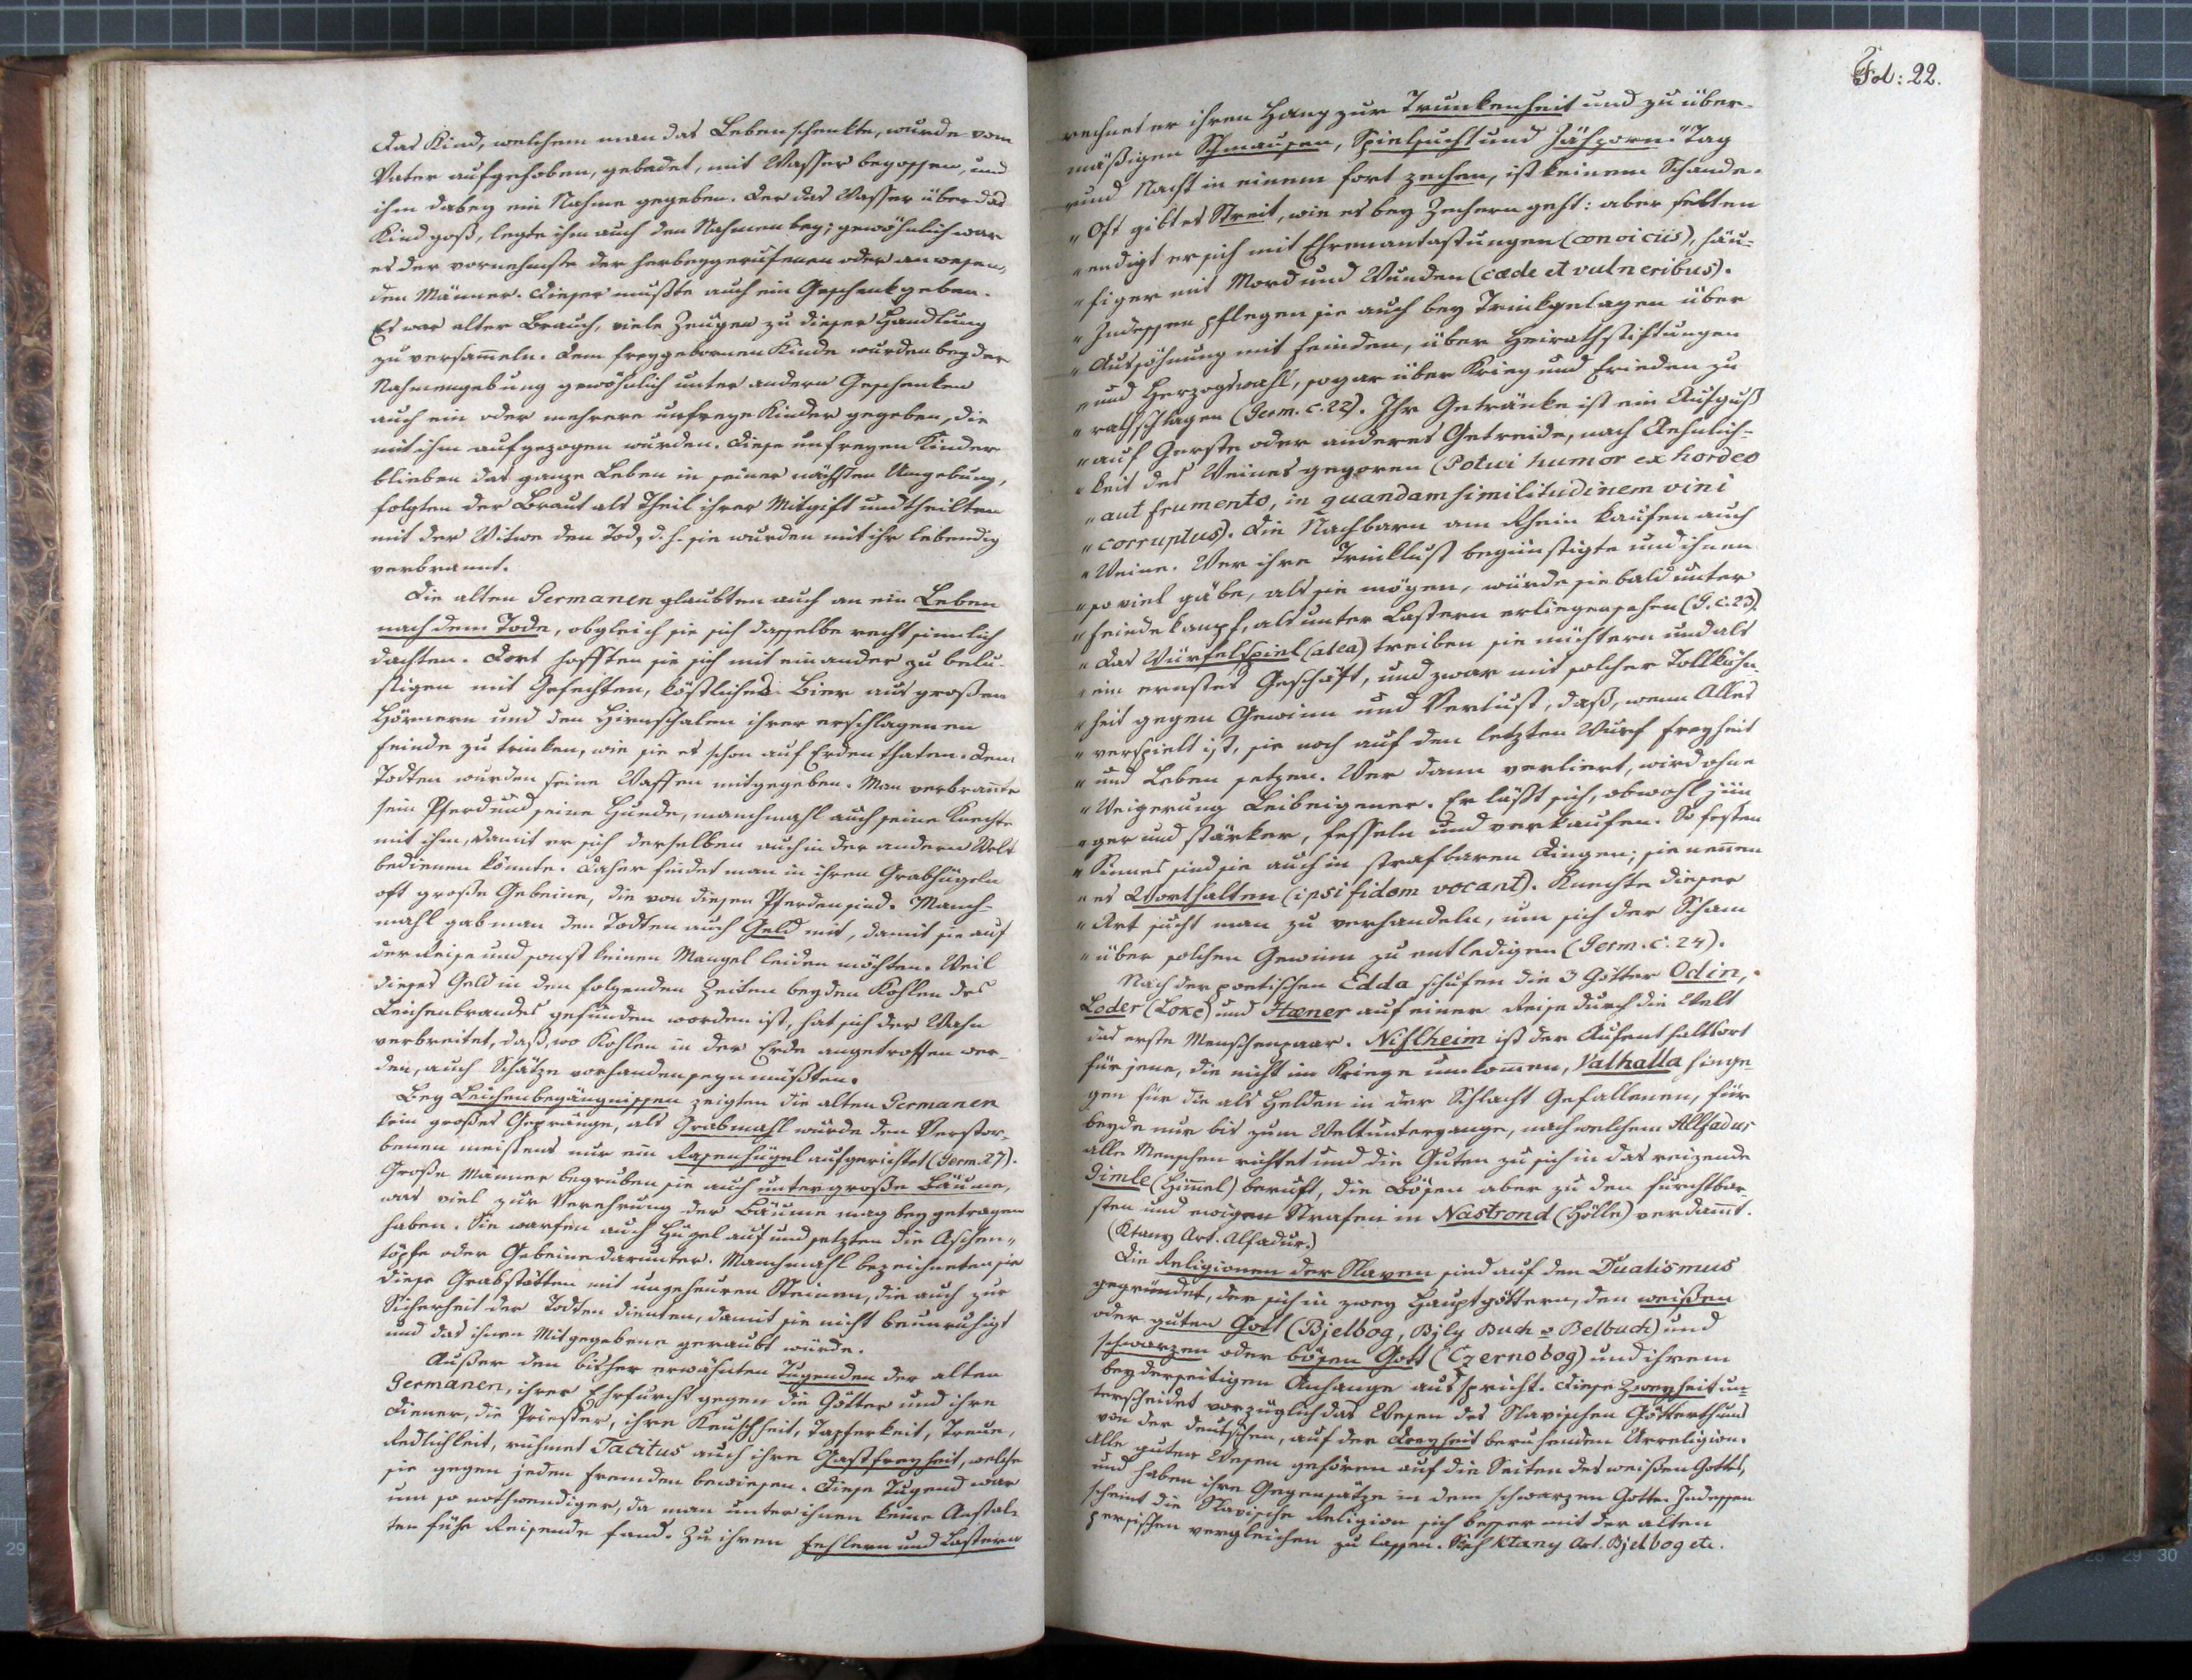 das Kind, welchem man das Leben schenkte, wurde vom
Vater aufgehoben, gebadet, mit Wasser begossen, und
ihm dabey ein Nahme gegeben. Der das Wasser über das
Kind goß, legte ihm auch den Nahmen bey; gewöhnlich war
es der vornehmste der herbeygerufenen oder anwesen-
den Männer. Dieser mußte auch ein Geschenk geben.
Es war alter Brauch, viele Zeugen zu dieser Handlung
zu versam̄eln. Dem freygebornen Kinde wurden bey der
Nahmengebung gewöhnlich unter andern Geschenken
auch ein oder mehrere unfreye Kinder gegeben, die
mit ihm aufgezogen wurden. Diese unfreyen Kinder
blieben das ganze Leben in seiner nächsten Umgebung,
folgten der Braut als Theil ihrer Mitgift und theilten
mit der Witwe den Tod, d. h. sie wurden mit ihr lebendig
verbrannt.
Die alten Germanen glaubten auch an ein Leben
nach dem Tode, obgleich sie sich dasselbe recht sinnlich
dachten. Dort hofften sie sich mit einander zu belu-
stigen mit Gefechten, köstliches Bier aus großen
Hörnern und den Hirnschalen ihrer erschlagenen
Feinde zu trinken, wie sie es schon auf Erden thaten. Dem
Todten wurden seine Waffen mitgegeben. Man verbran̄te
sein Pferd und seine Hunde, manchmahl auch seine Knechte
mit ihm, damit er sich derselben auch in der andern Welt
bedienen könnte. Daher findet man in ihren Grabhügeln
oft große Gebeine, die von diesen Pferden sind. Manch-
mahl gab man den Todten auch Geld mit, damit sie auf
der Reise und sonst keinen Mangel leiden möchten. Weil
dieses Geld in den folgenden Zeiten bey den Kohlen des
Leichenbrandes gefunden worden ist, hat sich der Wahn
verbreitet, daß, wo Kohlen in der Erde angetroffen wer-
den, auch Schätze vorhanden seyn müßten.
Bey Leichenbegängnissen zeigten die alten Germanen
kein großes Gepränge, als Grabmahl wurde den Verstor-
benen meistens nur ein Rasenhügel aufgerichtet (Germ. 27).
Große Männer begruben sie auch unter große Bäume,
was viel zur Verehrung der Bäume mag beygetragen
haben. Sie warfen auch Hügel auf und setzten die Aschen-
töpfe oder Gebeine darunter. Manchmahl bezeichneten sie
diese Grabstätten mit ungeheuren Steinen, die auch zur
Sicherheit der Todten dienten, damit sie nicht beunruhigt
und das ihnen Mitgegebene geraubt würde.
Außer den bisher erwähnten Tugenden der alten
Germanen, ihrer Ehrfurcht gegen die Götter und ihre
Diener, die Priester, ihre Keuschheit, Tapferkeit, Treue,
Redlichkeit, rühmet Tacitus auch ihre Gastfreyheit, welche
sie gegen jeden Fremden bewiesen. Diese Tugend war
um so nothwendiger, da man unter ihnen keine Anstal-
ten führ Reisende fand. Zu ihren Fehlern und Lastern
Fol: 22.
rechnet er ihren Hang zur Trunkenheit und zu über-
mäßigen Schmausen, Spielsucht und Jähzorn. "Tag
"und Nacht in einem fort zechen, ist keinem Schande.
"Oft gibt es Streit, wie es bey Zechern geht: aber selten
"endigt er sich mit Ehrenantastungen (conviciis), häu-
"figer mit Mord und Wunden (cæde et vulneribus).
"Indessen pflegen sie auch bey Trinkgelagen über
"Aussöhnung mit Feinden, über Heirathstiftungen
"und Herzogswahl, sogar über Krieg und Frieden zu
"rathschlagen (Germ. c. 22). Ihr Getränke ist ein Aufguß
"auf Gerste oder anderes Getreide, nach Aehnlich-
"keit des Weines gegoren (Potui humor ex hordeo
"aut frumento, in quandam similitudinem vini
"corruptus). Die Nachbarn am Rhein kaufen auch
"Weine. Wer ihre Trinklust begünstigte und ihnen
"so viel gäbe, als sie mögen, würde sie bald unter
"Feindekampf, als unter Lastern erliegen sehen (G. c. 23).
"Das Würfelspiel (alea) treiben sie nüchtern und als
"ein ernstes Geschäft, und zwar mit solcher Tollkühn-
"heit gegen Gewinn und Verlust, daß, wenn Alles
"verspielt ist, sie noch auf den letzten Wurf Freyheit
"und Leben setzen. Wer dann verliert, wird ohne
"Weigerung Leibeigener. Er läßt sich, obwohl jün
"ger und stärker, fesseln und verkaufen. So festen
"Sinnes sind sie auch in strafbaren Dingen; sie neñen
"es Worthalten (ipsi fidem vocant). Knechte dieser
"Art sucht man zu verhandeln, um sich der Scham
"über solchen Gewinn zu entledigen (Germ. c. 24).
Nach der poetischen Edda schufen die 3 Götter Odin,
Loder (Loke) und Hæner auf einer Reise durch die Welt
das erste Menschenpaar. Niflheim ist der Aufenthaltsort
für jene, die nicht im Kriege umkom̄en, Valhalla hinge-
gen für die als Helden in der Schlacht Gefallenen, für
beyde nur bis zum Weltuntergange, nach welchem Allfadur
alle Menschen richtet und die Guten zu sich in das reizende
Gimle (Him̄el) beruft, die Bösen aber zu den furchtbar-
sten und ewigen Strafen in Nastrond (Hölle) verdam̄t.
(Ktany Art. Alfadur.)
Die Religionen der Slaven sind auf den Dualismus
gegründet, der sich in zwey Hauptgöttern, den weißen
oder guten Gott (Bjelbog, Bjly Buch = Belbuch) und
schwarzen oder bösen Gott (Czernobog) und ihrem
beyderseitigen Anhange ausspricht. Diese Zweyheit un-
terscheidet vorzüglich das Wesen des Slavischen Götterthums
von der deutschen, auf der Dreyheit beruhenden Urreligion.
Alle guten Wesen gehören auf die Seiten des weißen Gottes,
und haben ihre Gegensätze in dem schwarzen Gotte. Indessen
scheint die Slavische Religion sich besser mit der alten
persischen vergleichen zu lassen. Sieh Ktany Art. Bjelbog etc.